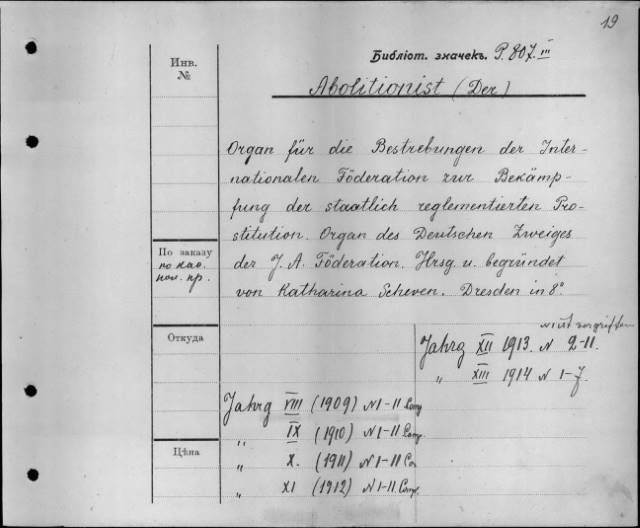 19
Библіот. значекъ. P. 807. III
Инв.
№
Abolitionist (Der)
Organ für die Bestrebungen der Inter-
nationalen Föderation zur Bekämp-
fung der staatlich reglementierten Pro-
stitution. Organ des Deutschen Zweiges
der J. A. Föderation. Hrsg. u. begründet
von Katharina Scheven. Dresden in 8°.
По заказу
по кав.
пол. пр.
Откуда
N 1 ist vergriffen
Jahrg XII 1913. N 2-11.
„ XIII 1914 N 1-7.
Jahrg VIII (1909) N 1-11 Comp.
„ IX (1910) N 1-11 Comp.
„ X. (1911) N 1-11 Co
„ XI (1912) N 1-11 Comp.
Цѣна